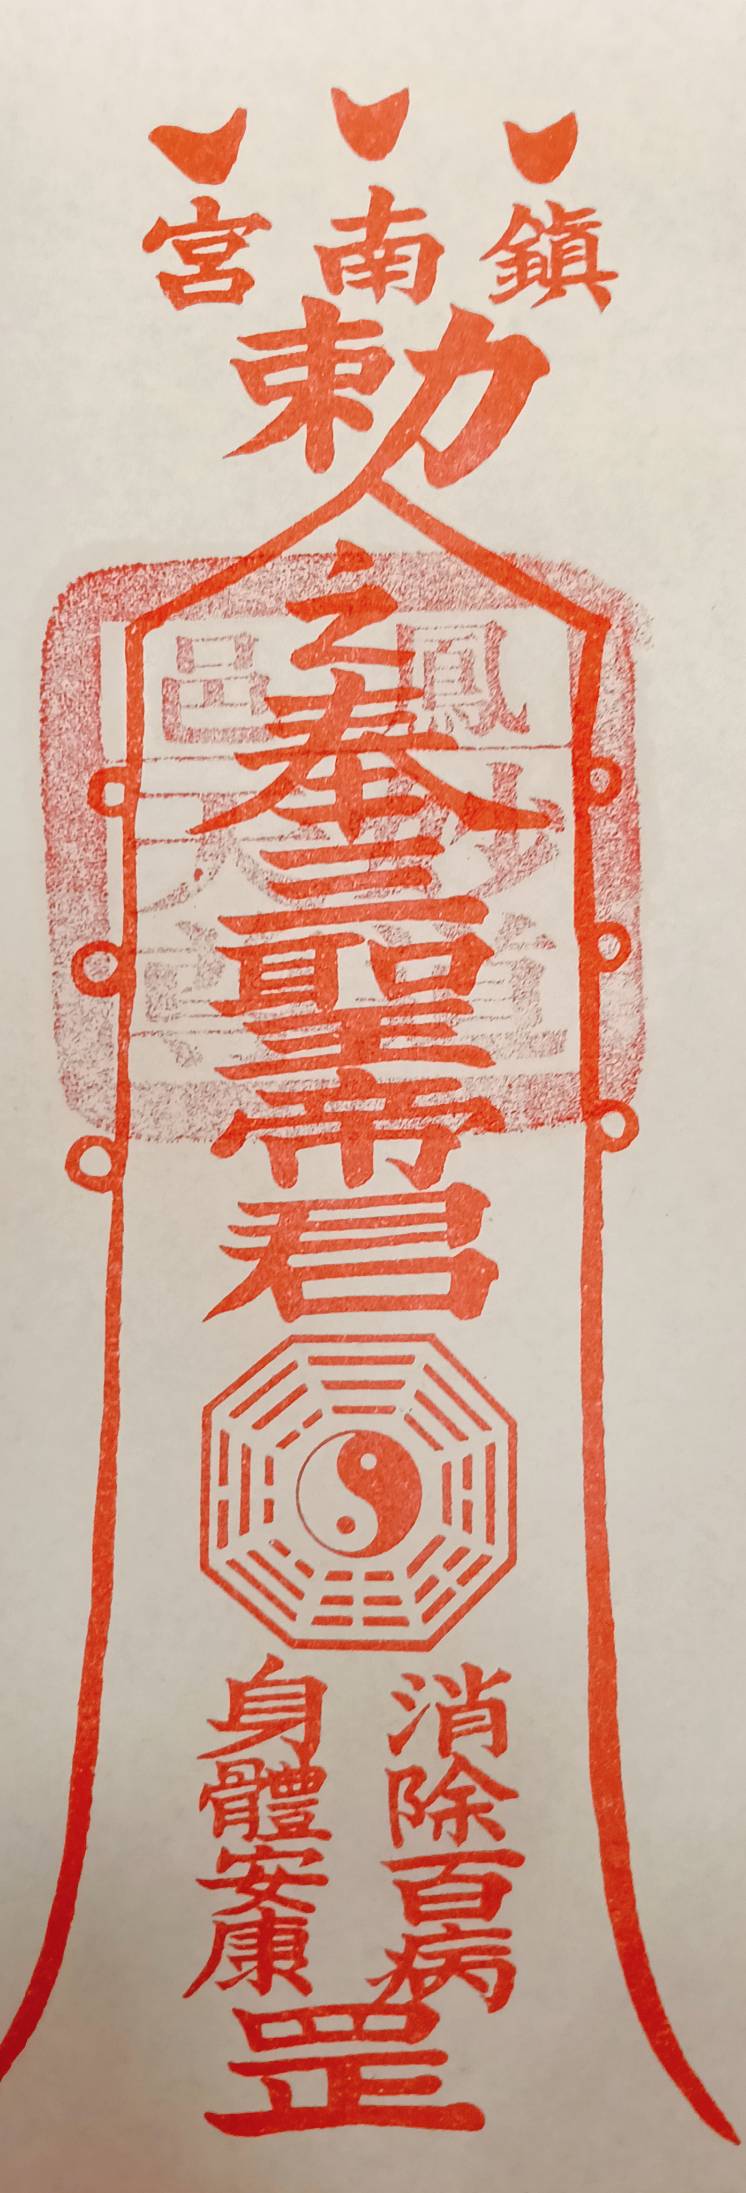 鎮南宮
勅
之奉三聖帝君
消除百病
身體安康
罡